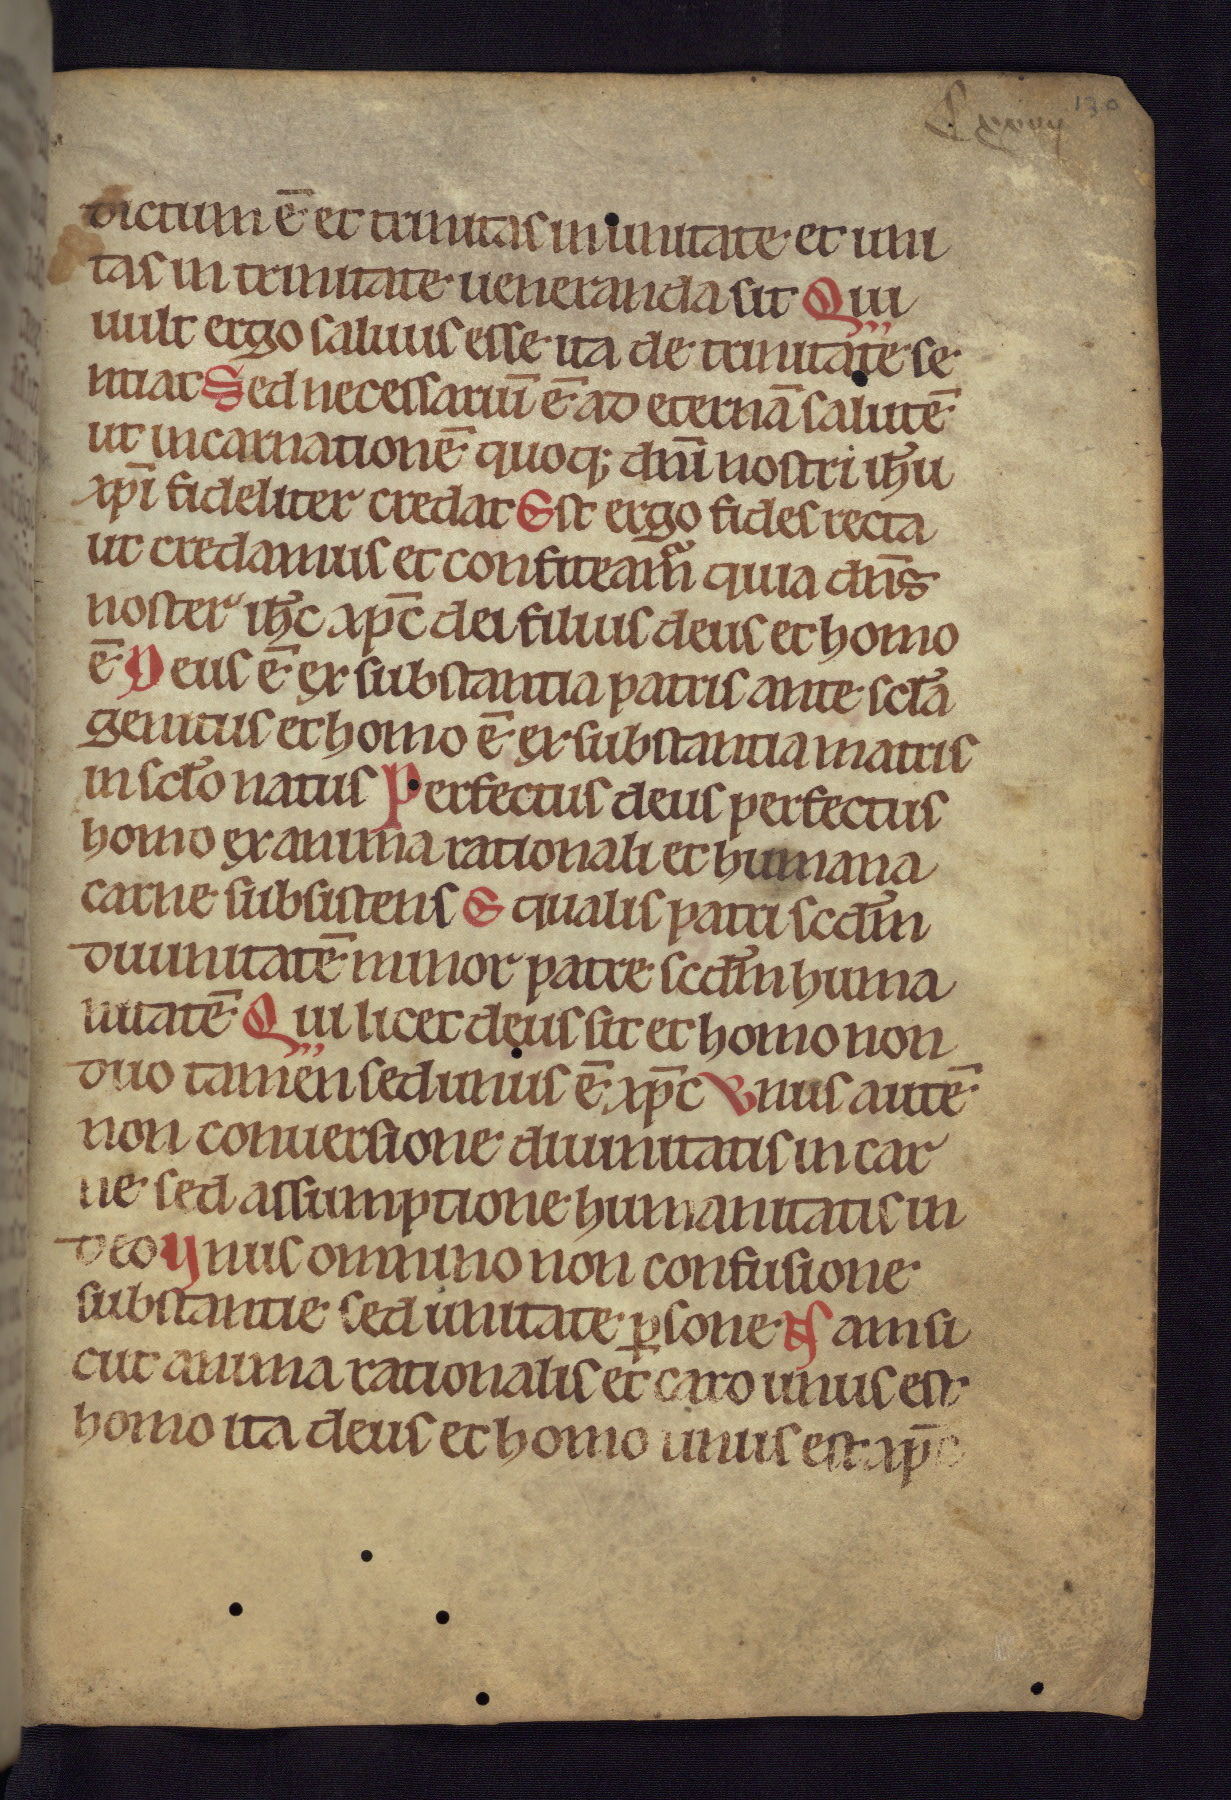 130
dictum ē et trinitas in unitate et uni
tas in trinitate ueneranda sit Qui
uult ergo saluus esse ita de trinitate se
ntiat Sed necessariū ē ad eternā salutē
ut incarnationē quoq; dnī nostri ihu
xpī fideliter credat Est ergo fides recta
ut credamus et confiteam̄ quia dn̄s
noster ihc xpc̄ dei filius deus et homo
ē Deus ē ex substantia patris ante sclā
genitus et homo ē ex substantia matris
in sclo natus Perfectus deus perfectus
homo ex anima rationali et humana
carne subsistens Equalis patri scdm
diuinitatē minor patre scdm huma
nitatē Qui licet deus sit et homo non
duo tamen sed unus ē xpc̄ Vnus autē
non conuersione diuinitatis in car
ne sed assumptione humanitatis in
deo Vnus omnino non confusione
substantie sed unitate p̱sone Nam si
cut anima rationalis et caro unus est
homo ita deus et homo unus est xpc̄